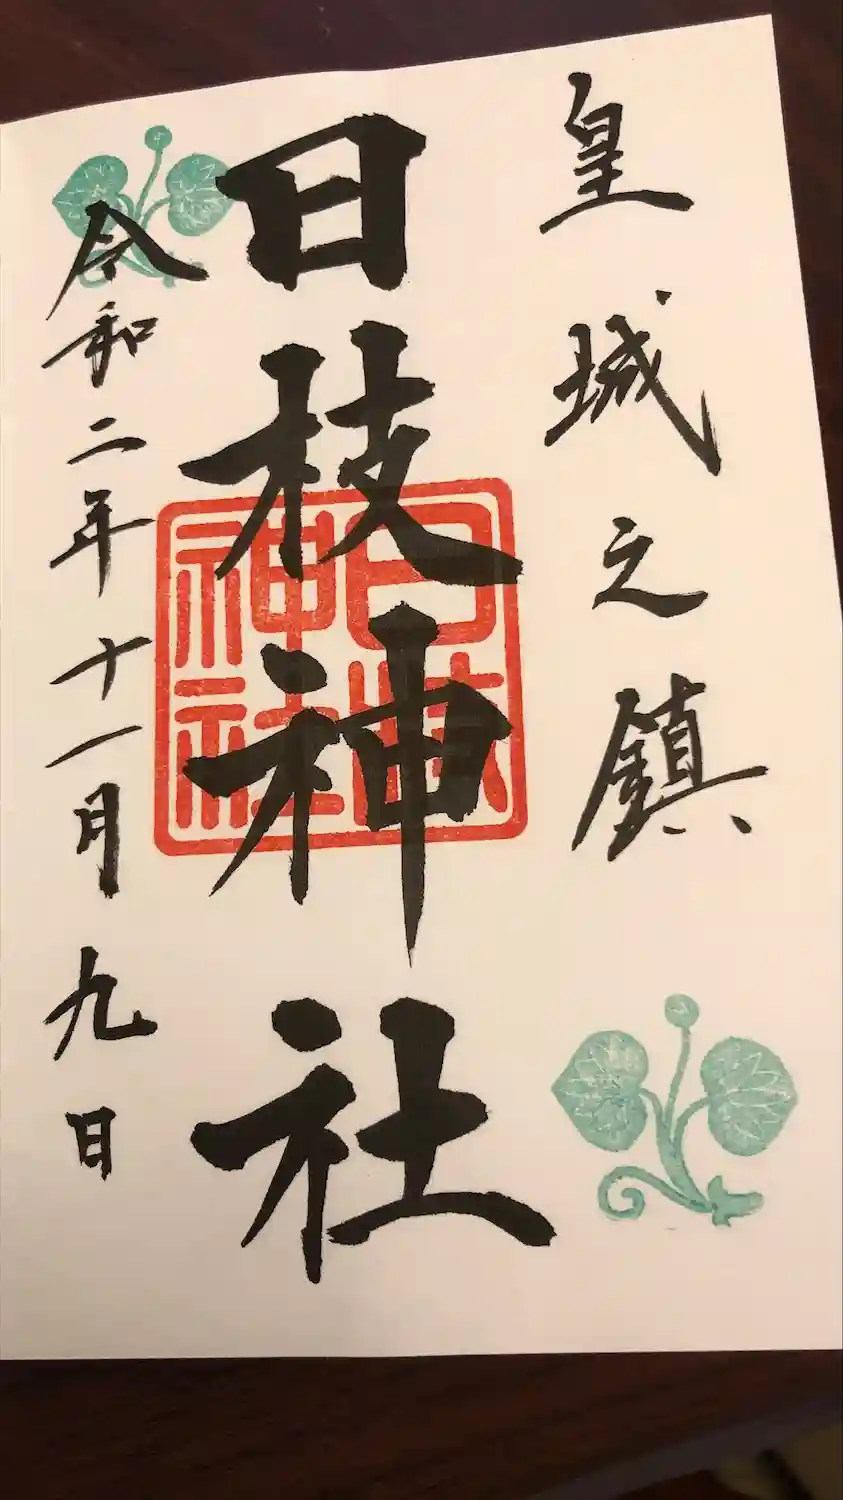 皇城之鎮
日枝神社
日枝神社
令和二年十一月九日